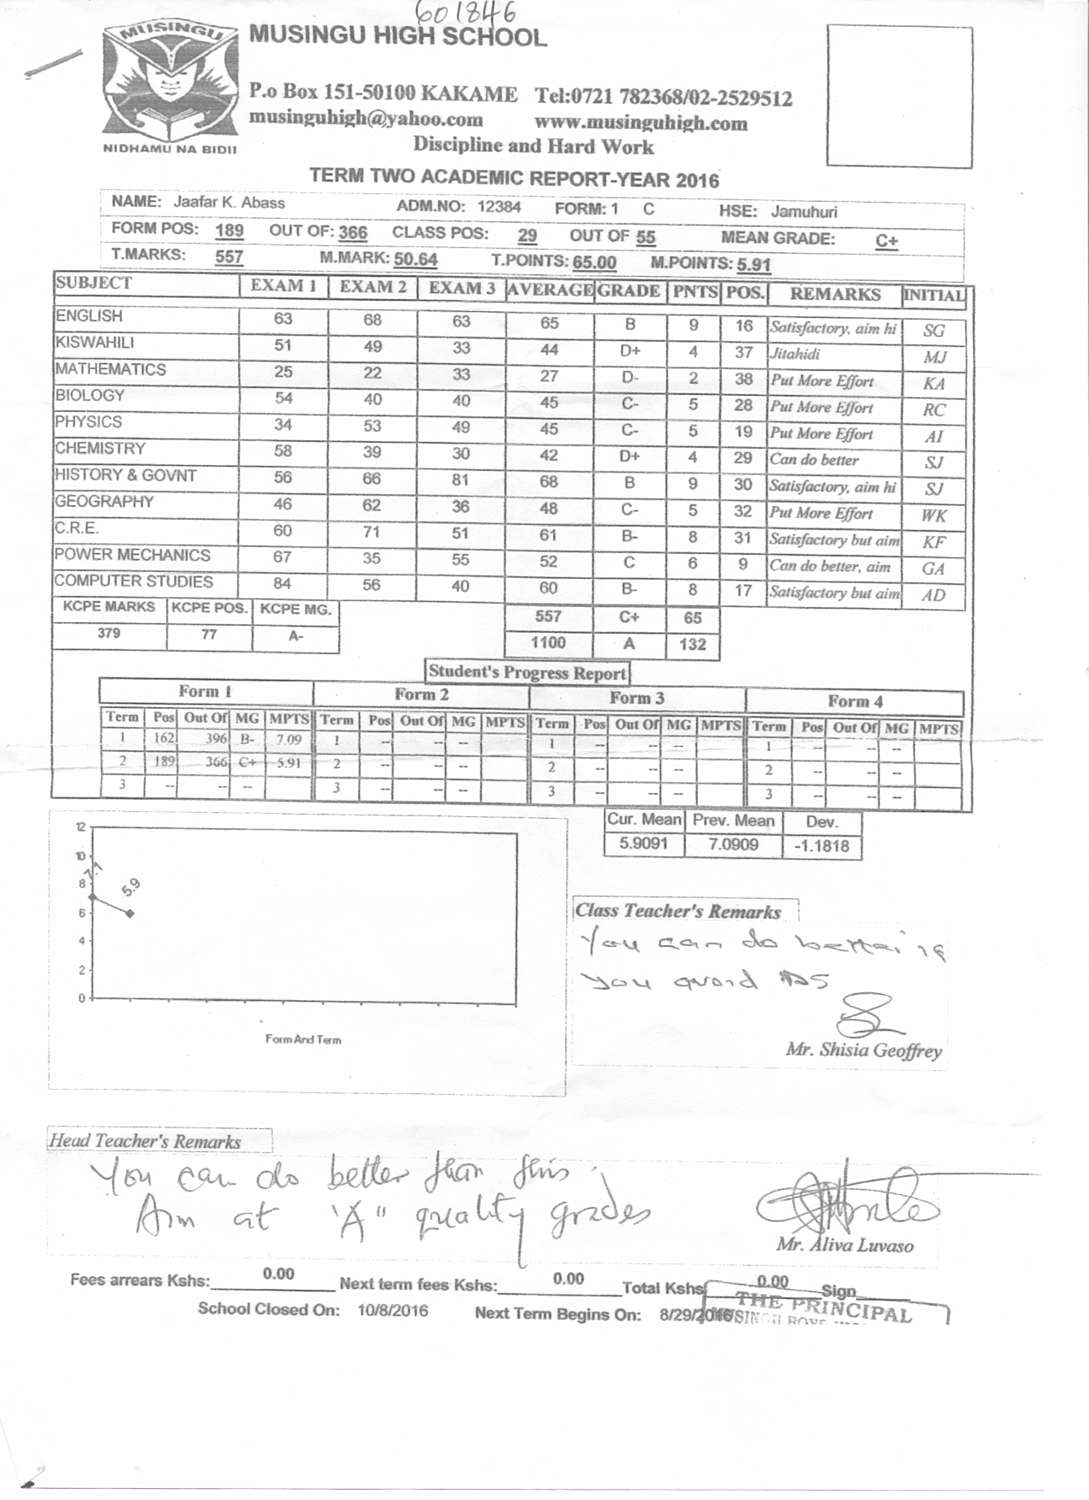 601846
MUSINGU
NIDHAMU NA BIDII
MUSINGU HIGH SCHOOL
P.o Box 151-50100 KAKAME Tel:0721 782368/02-2529512
musinguhigh@yahoo.com www.musinguhigh.com
Discipline and Hard Work
TERM TWO ACADEMIC REPORT-YEAR 2016
NAME: Jaafar K. Abass ADM.NO: 12384 FORM: 1 C HSE: Jamuhuri
FORM POS: 189 OUT OF: 366 CLASS POS: 29 OUT OF 55 MEAN GRADE: C+
T.MARKS: 557 M.MARK: 50.64 T.POINTS: 65.00 M.POINTS: 5.91
SUBJECT EXAM 1 EXAM 2 EXAM 3 AVERAGE GRADE PNTS POS. REMARKS INITIAL
ENGLISH 63 68 63 65 B 9 16 Satisfactory, aim hi SG
KISWAHILI 51 49 33 44 D+ 4 37 Jitahidi MJ
MATHEMATICS 25 22 33 27 D- 2 38 Put More Effort KA
BIOLOGY 54 40 40 45 C- 5 28 Put More Effort RC
PHYSICS 34 53 49 45 C- 5 19 Put More Effort AI
CHEMISTRY 58 39 30 42 D+ 4 29 Can do better SJ
HISTORY & GOVNT 56 66 81 68 B 9 30 Satisfactory, aim hi SJ
GEOGRAPHY 46 62 36 48 C- 5 32 Put More Effort WK
C.R.E. 60 71 51 61 B- 8 31 Satisfactory but aim KF
POWER MECHANICS 67 35 55 52 C 6 9 Can do better, aim GA
COMPUTER STUDIES 84 56 40 60 B- 8 17 Satisfactory but aim AD
KCPE MARKS KCPE POS. KCPE MG. 557 C+ 65
379 77 A- 1100 A 132
Student's Progress Report
Form 1 Form 2 Form 3 Form 4
Term Pos Out Of MG MPTS Term Pos Out Of MG MPTS Term Pos Out Of MG MPTS Term Pos Out Of MG MPTS
1 162 396 B- 7.09 1 -- -- -- 1 -- -- -- 1 -- -- --
2 189 366 C+ 5.91 2 -- -- -- 2 -- -- -- 2 -- -- --
3 -- -- -- 3 -- -- -- 3 -- -- -- 3 -- -- --
Cur. Mean Prev. Mean Dev.
5.9091 7.0909 -1.1818
12
10
8
6
4
2
0
7.1
5.9
Form And Term
Class Teacher's Remarks
You can do better if
you avoid Ds
Mr. Shisia Geoffrey
Head Teacher's Remarks
You can do better than this.
Aim at "A" quality grades
Mr. Aliva Luvaso
Fees arrears Kshs: 0.00 Next term fees Kshs: 0.00 Total Kshs 0.00 Sign
School Closed On: 10/8/2016 Next Term Begins On: 8/29/2016
THE PRINCIPAL